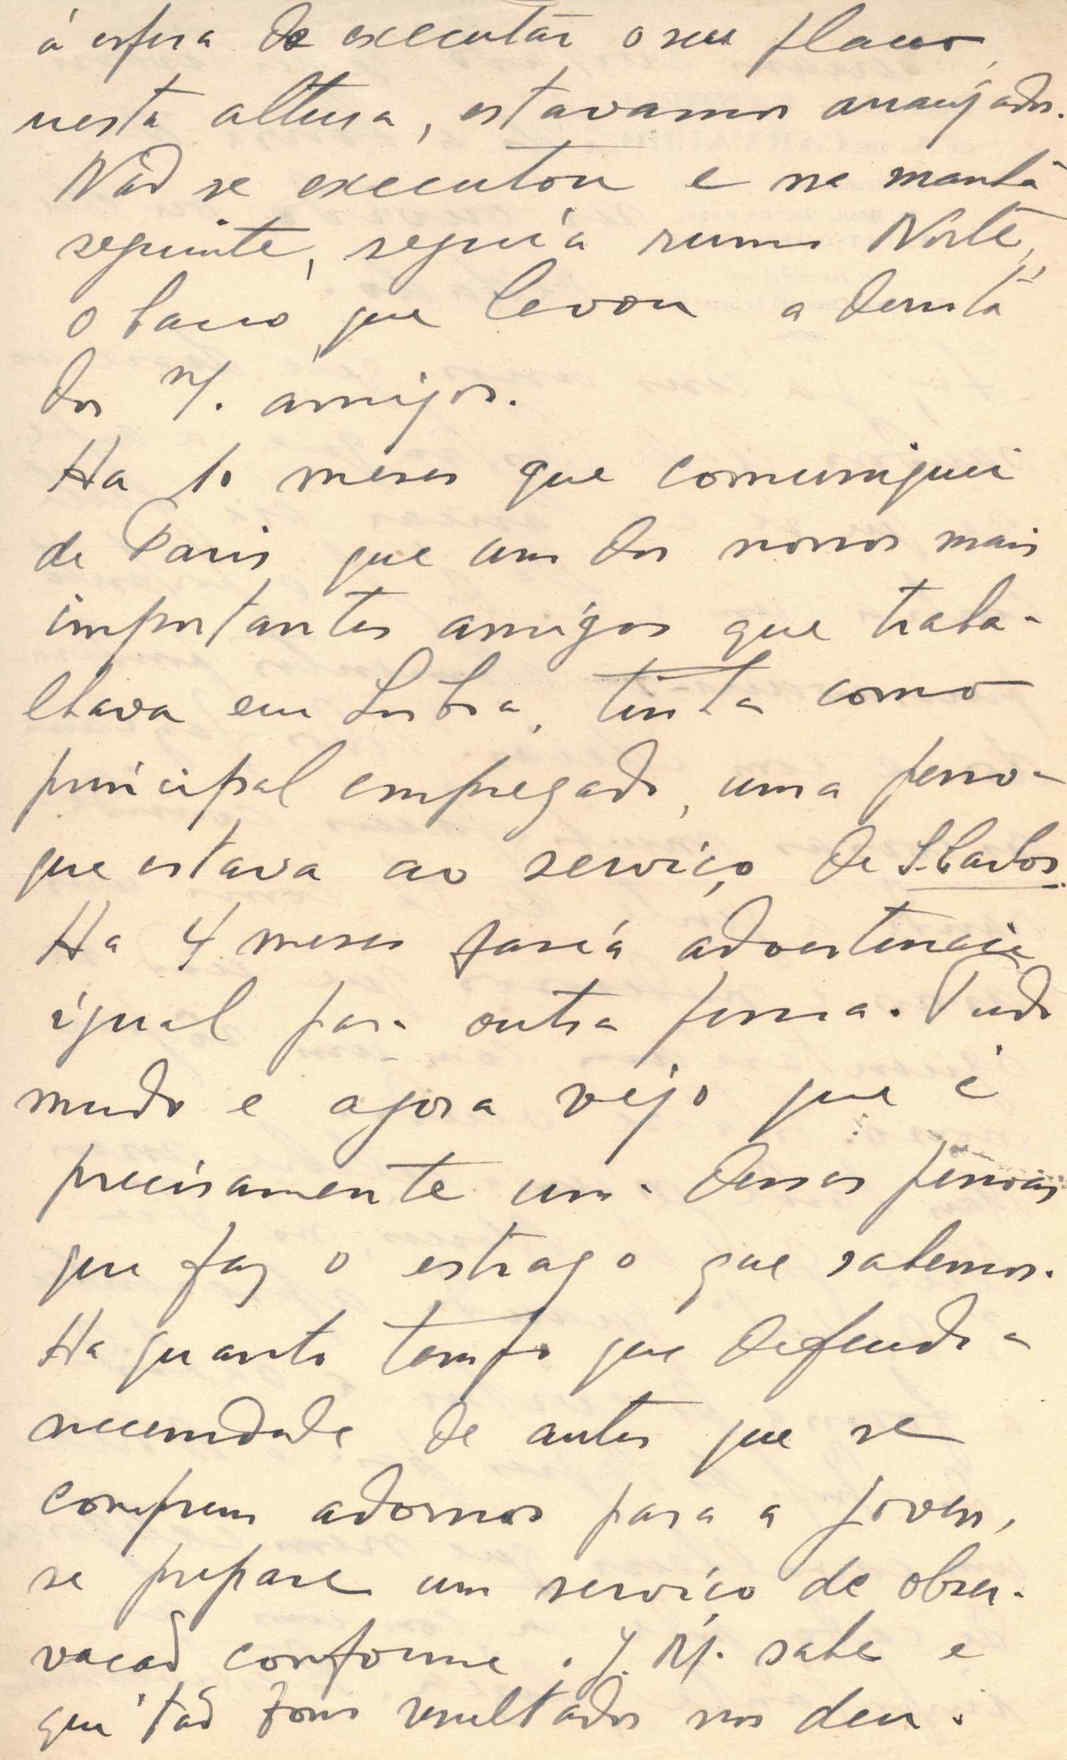 á espera de executar o seu plano,
nesta altura, estavamos arranjados.
Não se executou e na manhã
seguinte, seguia rumo Norte,
o barco que levou a
dos N. amigos.
Ha 10 meses que comuniquei
de Paris que um dos nossos mais
importantes amigos que traba-
lhava em Lisboa, tinha como
principal empregado, uma pessoa
que estava ao serviço de S. Carlos.
Ha 4 meses fazia advertencia
igual para outra pessoa. Tudo
mudo e agora vejo que é
precisamente uma dessas pessoas
que faz o estrago que sabemos.
Ha quanto tempo que defendo a
necessidade de antes que se
comprem adornos para a joven,
se prepare um serviço de obser-
vacaõ conforme. V. M. sabe e
que taõ bons resultados nos deu.